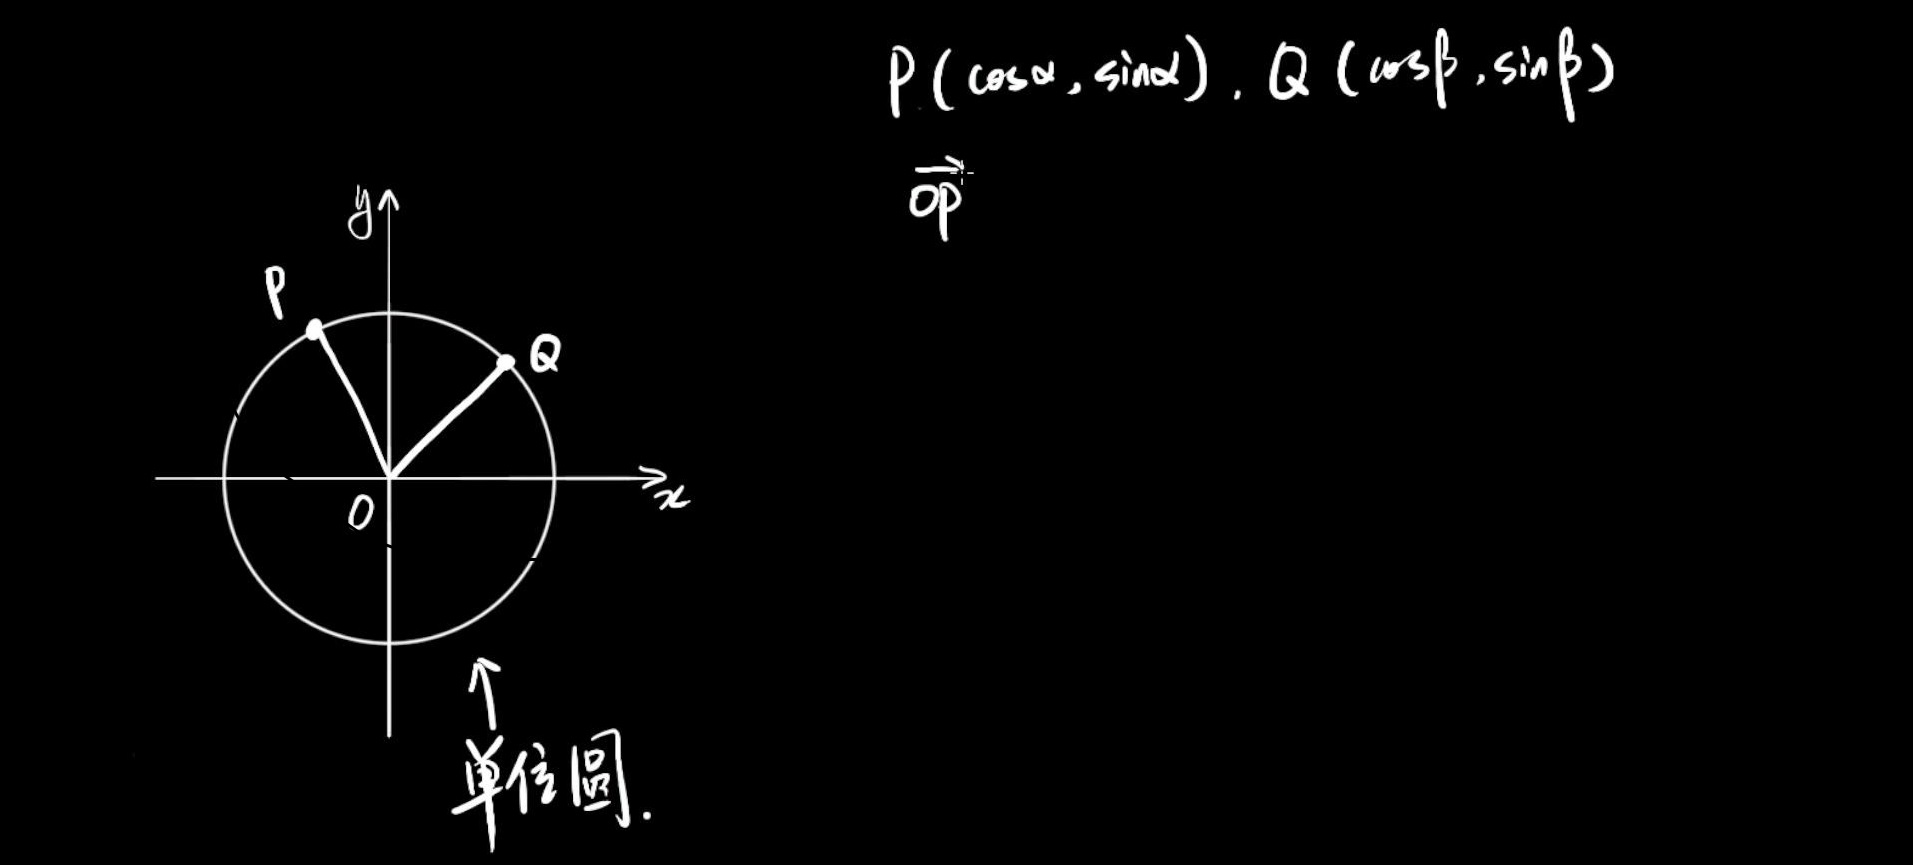 P(cosα, sinα). Q(cosβ, sinβ)
→
OP
y
P
Q
O
x
单位圆.